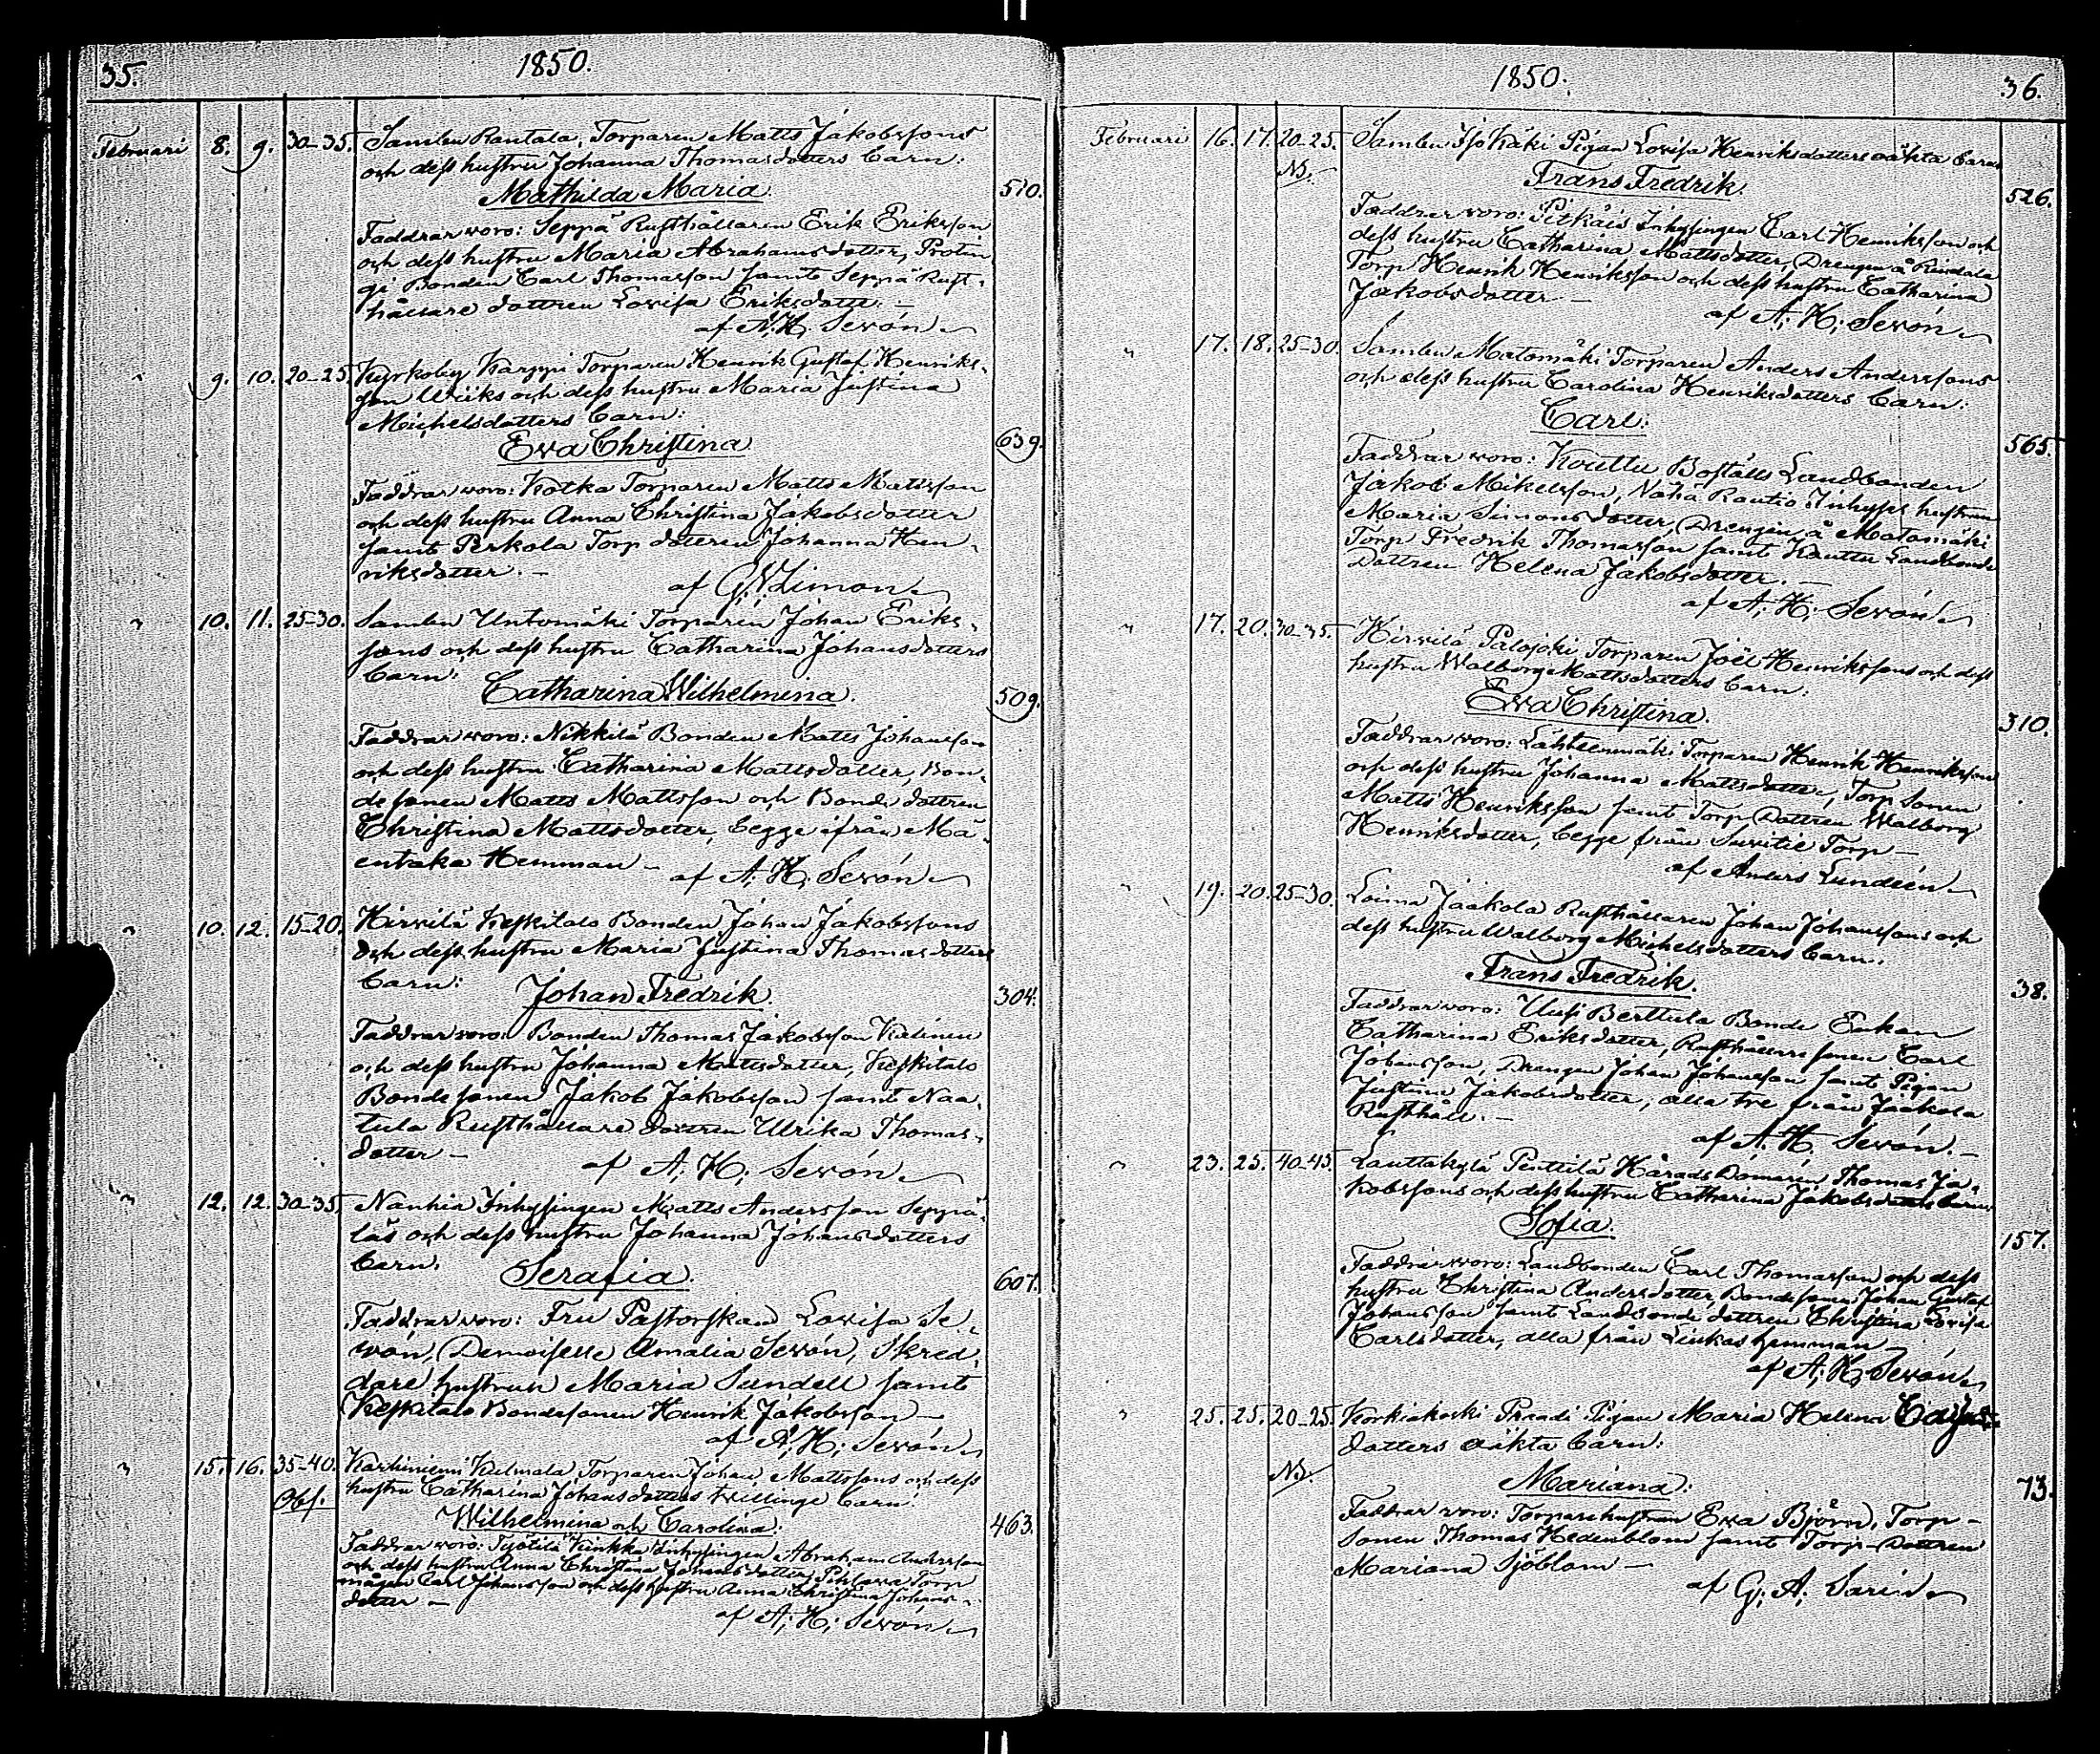 35.
1850.
Februari 8. 9. 30-35. Samlen Rantala, Torparen Matts Jakobssons
och dess hustru Johanna Thomasdotters barn:
Mathilda Maria. 510.
Faddrar woro: Seppä Rusthållaren Erik Eriksson
och dess hustru Maria Abrahamsdotter, Protin
gi Bonden Carl Thomasson samt Seppä Rust-
hållare dottren Lovisa Eriksdotter. —
af A: H: Sewón
" 9. 10. 20-25. Kyrkoby Karppi Torparen Henrik Gustaf Henriks-
son Wiiks och dess hustru Maria Justina
Michelsdotters barn:
Eva Christina 639.
Faddrar woro: Kotka Torparen Matts Mattsson
och dess hustru Anna Christina Jakobsdotter
samt Perkola Torp dottren Johanna Hen-
riksdotter. —
af G. N. Limon
" 10. 11. 25-30. Samlen Untomäki Torparen Johan Eriks-
sons och dess hustru Catharina Johansdotters
barn:
Catharina Wilhelmina. 509.
Faddrar woro: Nikkilä Bonden Matts Johansson
och dess hustru Catharina Mattsdotter, Bon-
de sonen Matts Mattsson och Bonde dottren
Christina Mattsdotter, begge ifrån Mä-
entaka Hemman —
af A: H: Sewón
" 10. 12. 15-20. Hirvilä Keskitalo Bonden Johan Jakobssons
och dess hustru Maria Justina Thomasdotters
barn:
Johan Fredrik. 304.
Faddrar woro: Bonden Thomas Jakobsson
och dess hustru Johanna Mattsdotter, Keskitalo
Bondesonen Jakob Jakobsson samt Naa-
tula Rusthållare dottren Ulrika Thomas-
dotter —
af A: H: Sewón
" 12. 12. 30-35. Nanhia Inhysingen Matts Andersson Seppä-
läs och dess hustru Johanna Johansdotters
barn:
Serafia. 607.
Faddrar woro: Fru Pastorskan Lovisa Se-
wón, Demoiselle Amalia Sewón, Skred-
dare hustrun Maria Sundell samt
Keskitalo Bondesonen Henrik Jakobsson —
af A: H: Sewón
" 15. 16. 35-40. Karhiniemi Kulmala Torparen Johan Mattssons och dess
Obs. hustru Catharina Johansdotters twillinge barn:
Wilhelmina och Carolina. 463.
Faddrar woro: Inhysingen Abraham Andersson
och dess hustru Anna Christina Johansdotter, Torp
mågen Carl Johansson och dess hustru Anna Christina Johans-
dotter —
af A: H: Sewón
1850.
36.
Februari 16. 17. 20-25. Samlen Iso Käki Pigan Lovisa Henriksdotters oäkta barn
NB. Frans Fredrik. 526.
Faddrar woro: Pitkäis Inhysingen Carl Henriksson och
dess hustru Catharina Mattsdotter, Drengen å Rindala
Torp Henrik Henriksson och dess hustru Catharina
Jakobsdotter —
af A: H: Sewón
" 17. 18. 25-30. Samlen Matomäki Torparen Anders Anderssons
och dess hustru Carolina Henriksdotters barn:
Carl: 565.
Faddrar woro: Kouttu Boställs Landbonden
Jakob Mikelsson, Näkä Rautio Inhyses hustrun
Maria Simonsdotter, Drengen å Matomäki
Torp Fredrik Thomasson samt Kouttu Landbonde
Dottren Helena Jakobsdotter. —
af A: H: Sewón
" 17. 20. 30-35. Hirvilä Palojoki Torparen Joël Henrikssons och dess
hustru Walborg Mattsdotters barn:
Eva Christina. 310.
Faddrar woro: Lähteenmäki Torparen Henrik Henriksson
och dess hustru Johanna Mattsdotter, Torp sonen
Matts Henriksson samt Torp Dottren Walborg
Henriksdotter, begge från Torp —
af Anders Lundeen
" 19. 20. 25-30. Loima Jaakola Rusthållaren Johan Johanssons och
dess hustru Walborg Michelsdotters barn:
Frans Fredrik. 38.
Faddrar woro: Uusi Berttula Bonde Enkan
Catharina Eriksdotter, Rusthållare sonen Carl
Johansson, Drengen Johan Johansson samt Pigan
Justina Jakobsdotter, alla tre från Jaakola
Rusthåll. —
af A: H: Sewón. —
" 23. 25. 40-45. Lauttakylä Penttilä Härads Domaren Thomas Ja-
kobssons och dess hustru Catharina Jakobsdotters barn:
Sofia. 157.
Faddrar woro: Landbonden Carl Thomasson och dess
hustru Christina Andersdotter, Bondesonen Johan Gustaf
Johansson samt Landbonde dottren Christina Lovisa
Carlsdotter, alla från Linkas hemman —
af A: H: Sewón
" 25. 25. 20-25. Korkiakoski Prandi Pigan Maria Helena
dotters oäkta barn:
NB. Mariana: 73.
Faddrar woro: Torpare hustrun Eva Björn, Torp-
sonen Thomas Hedenblom samt Torp-Dottren
Mariana Sjöblom —
af G: A: Sarin